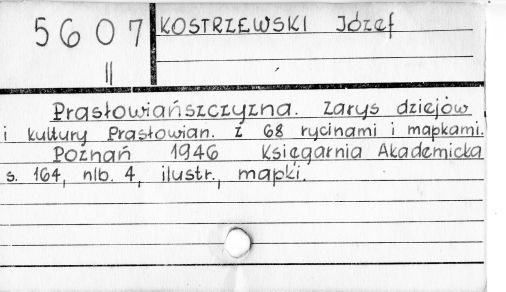 5607 KOSTRZEWSKI Józef
II
Prasłowiańszczyzna. Zarys dziejów
i kultury Prasłowian. Z 68 rycinami i mapkami.
Poznań 1946 Księgarnia Akademicka
s. 164, nlb. 4, ilustr., mapki.